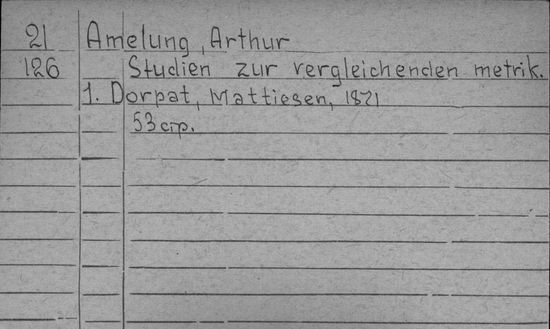 21 Amelung, Arthur
126 Studien zur vergleichenden metrik.
1. Dorpat, Mattiesen, 1871
53 стр.